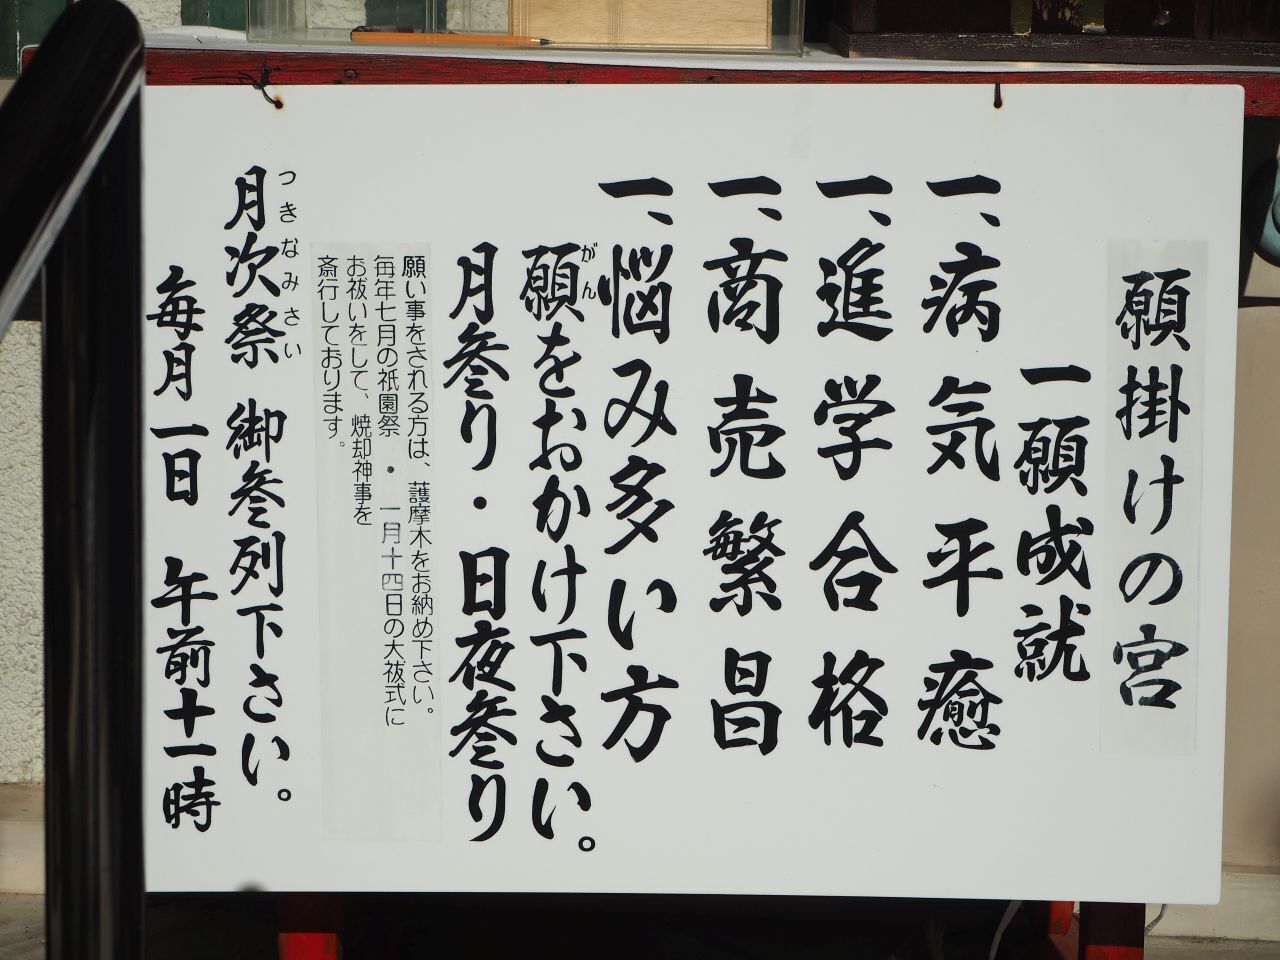 願掛けの宮
一願成就
一、病気平癒
一、進学合格
一、商売繁昌
一、悩み多い方
願をおかけ下さい。
がん
月参り・日夜参り
願い事をされる方は、護摩木をお納め下さい。
毎年七月の祇園祭・一月十四日の大祓式に
お祓いをして、焼却神事を
斎行しております。
つきなみさい
月次祭 御参列下さい。
毎月一日 午前十一時